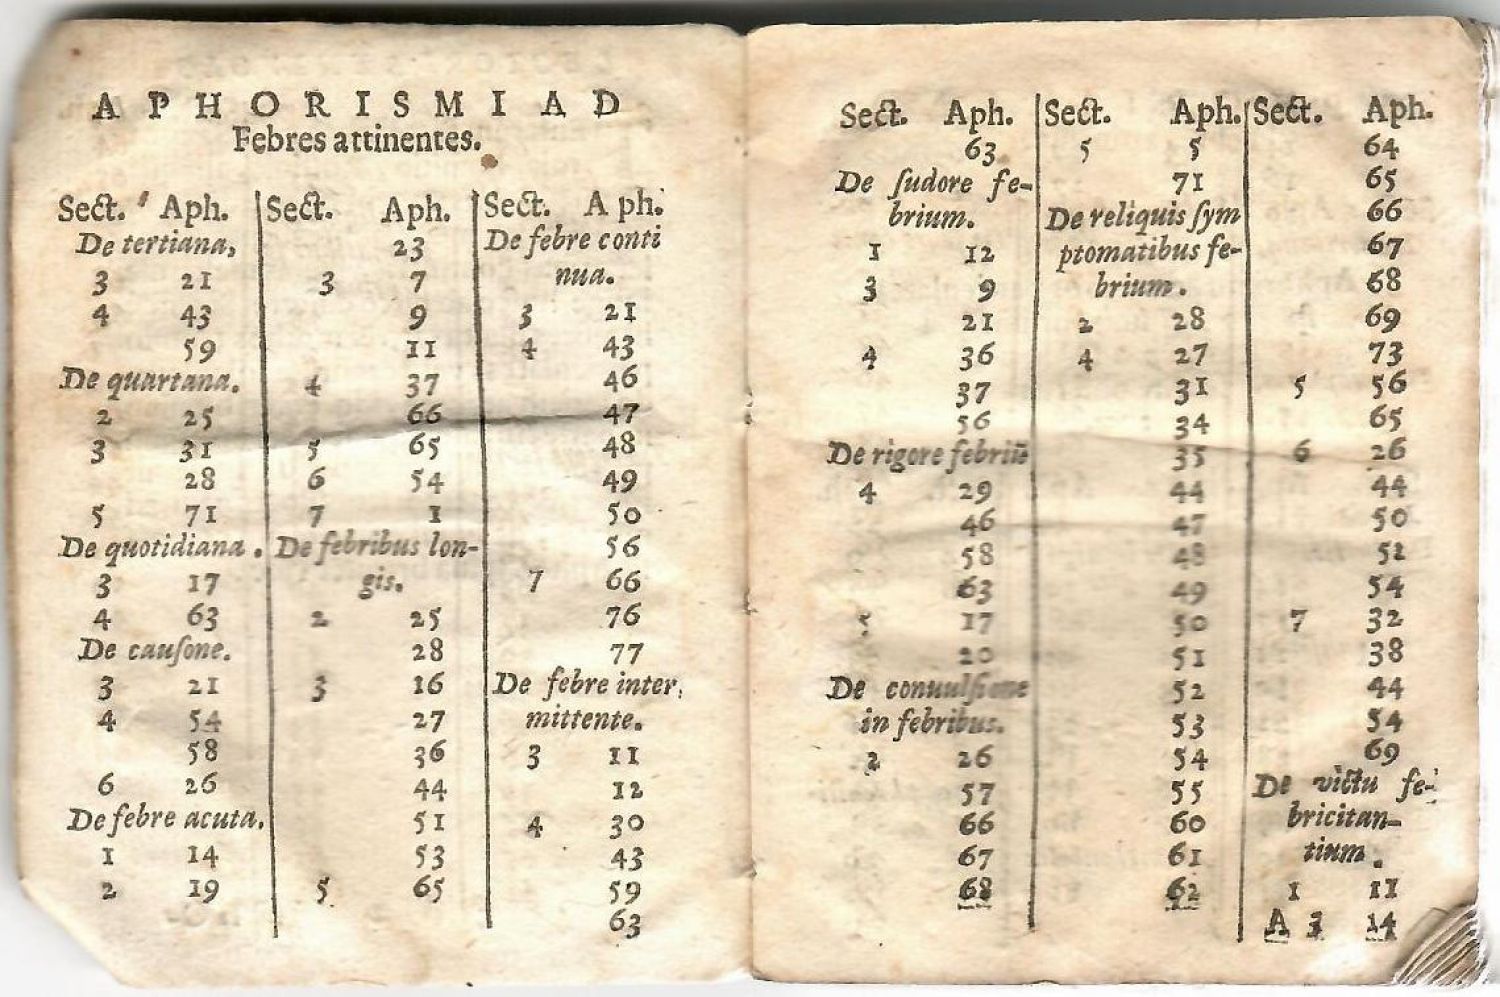 APHORISMI AD
Febres attinentes.
Sect. Aph.
De tertiana,
3 21
4 43
59
De quartana.
2 25
3 31
28
5 71
De quotidiana.
3 17
4 63
De cauſone.
3 21
4 54
58
6 26
De febre acuta.
1 14
2 19
Sect. Aph.
23
3 7
9
11
4 37
66
5 65
6 54
7 1
De febribus lon-
gis.
2 25
28
3 16
27
36
44
51
53
5 65
Sect. Aph.
De febre conti
nua.
3 21
4 43
46
47
48
49
50
56
7 66
76
77
De febre inter,
mittente.
3 11
12
4 30
43
59
63
Sect. Aph.
63
De ſudore fe-
brium.
1 12
3 9
21
4 36
37
56
De rigore febriũ
4 29
46
58
63
5 17
20
De conuulſione
in febribus.
2 26
57
66
67
68
Sect. Aph.
5 5
71
De reliquis ſym
ptomatibus fe-
brium.
2 28
4 27
31
34
35
44
47
48
49
50
51
52
53
54
55
60
61
62
Sect. Aph.
64
65
66
67
68
69
73
5 56
65
6 26
44
50
52
54
7 32
38
44
54
69
De victu fe-
bricitan-
tium.
1 11
A 3 14